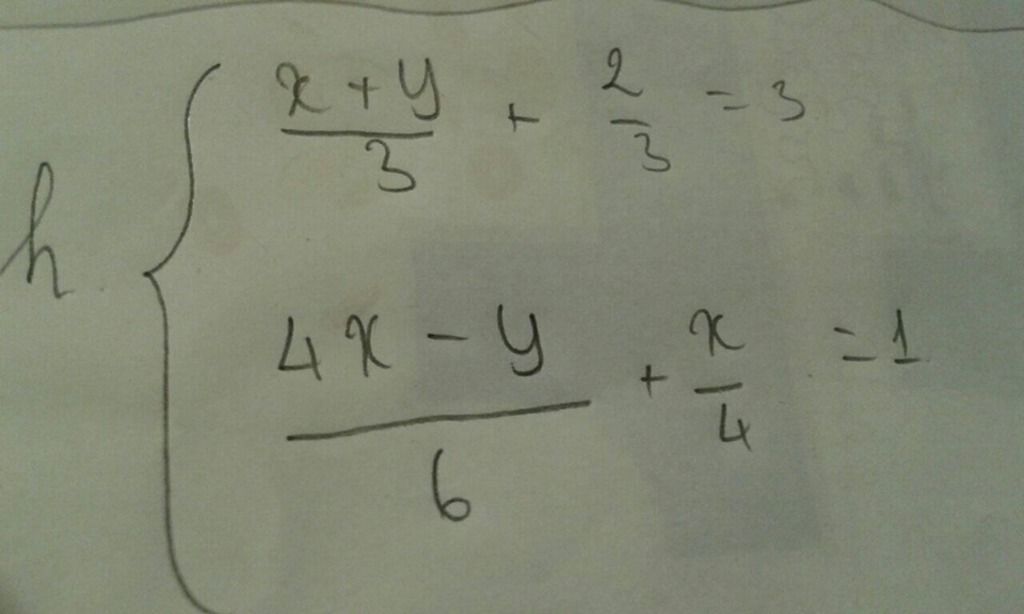 h { (x + y)/3 + 2/3 = 3
(4x - y)/6 + x/4 = 1